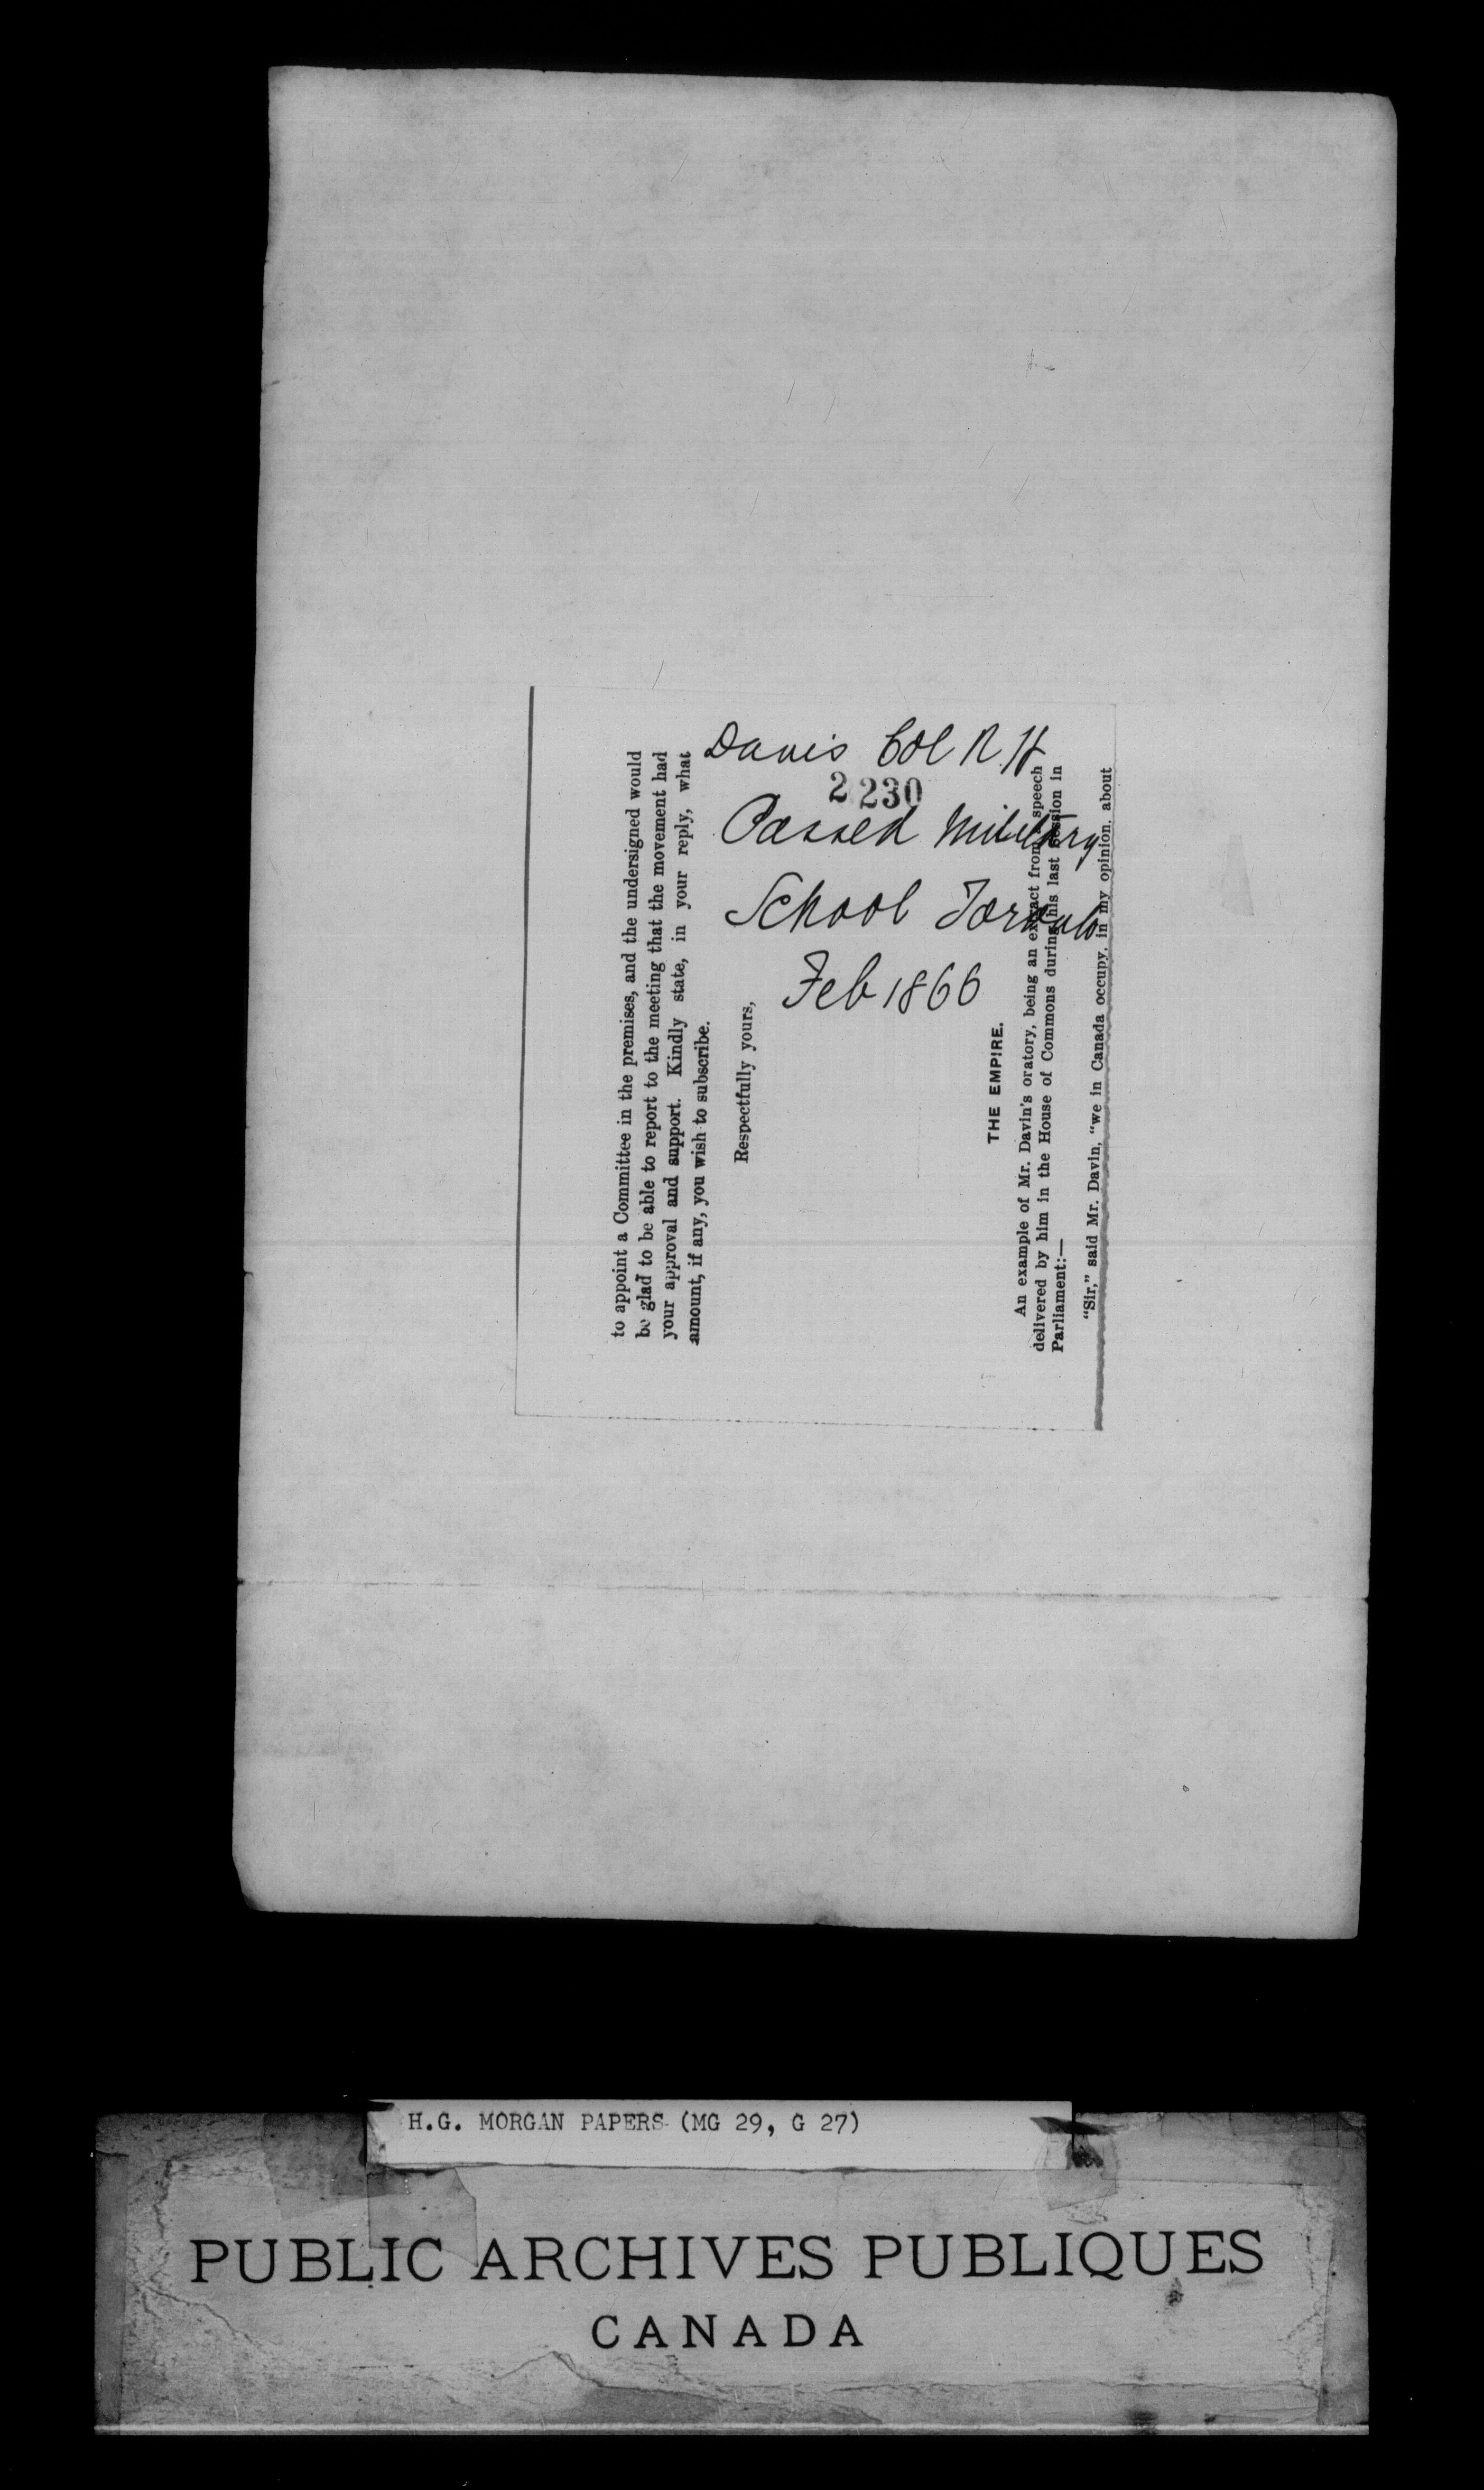 Davis Col R. H
2230
Passed Military
School Toronto
Feb 1866
to appoint a Committee in the premises, and the undersigned would
be glad to be able to report to the meeting that the movement had
your approval and support. Kindly state, in your reply, what
amount, if any, you wish to subscribe.
Respectfully yours,
THE EMPIRE.
An example of Mr. Davin's oratory, being an extract from a speech
delivered by him in the House of Commons during his last session in
Parliament:—
"Sir," said Mr. Davin, "we in Canada occupy, in my opinion, about
H.G. MORGAN PAPERS (MG 29, G 27)
PUBLIC ARCHIVES PUBLIQUES
CANADA